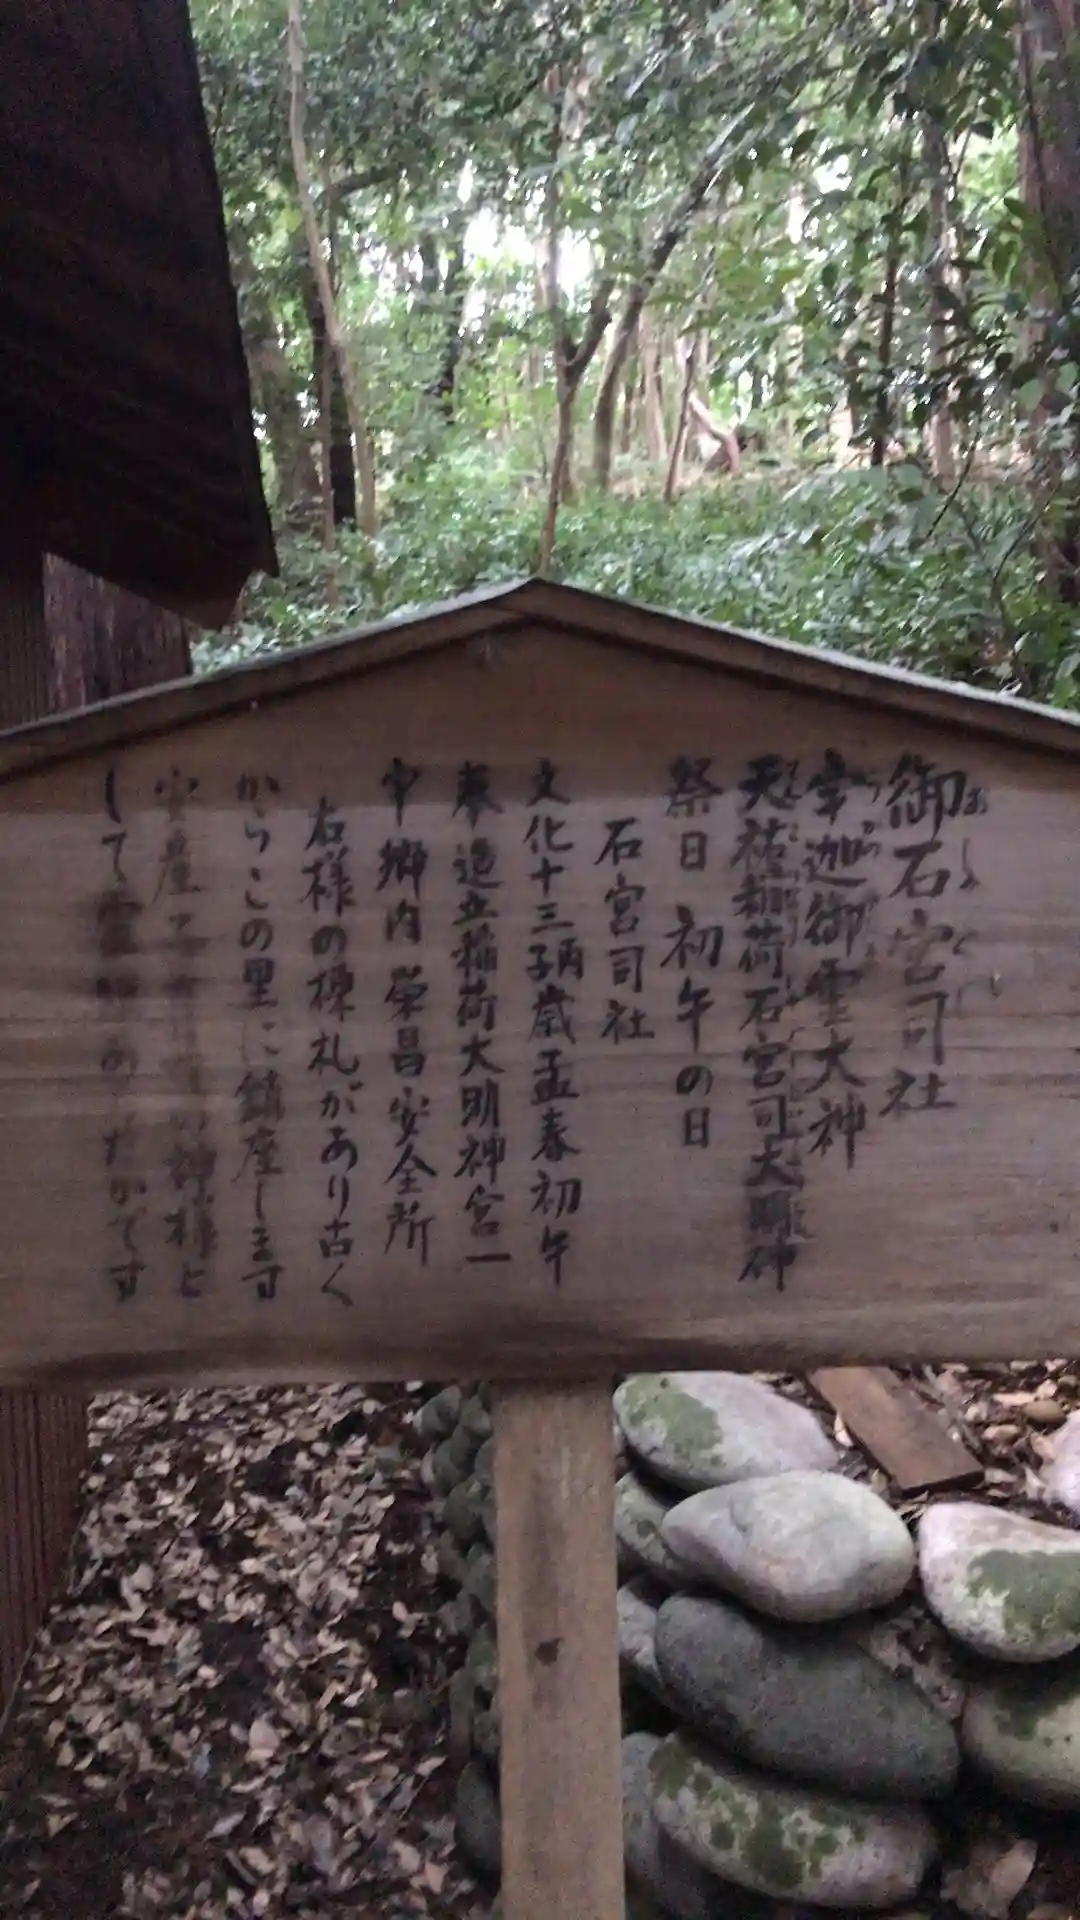 御石宮司社
宇迦御霊大神
天祐稲荷石宮司大明神
祭日 初午の日
石宮司社
文化十三丙子歳孟春初午
奉造立稲荷大明神宮一
中郷内栄昌安全所
右様の棟札があり古く
からこの里に鎮座します
安産 の神様と
して霊 かです